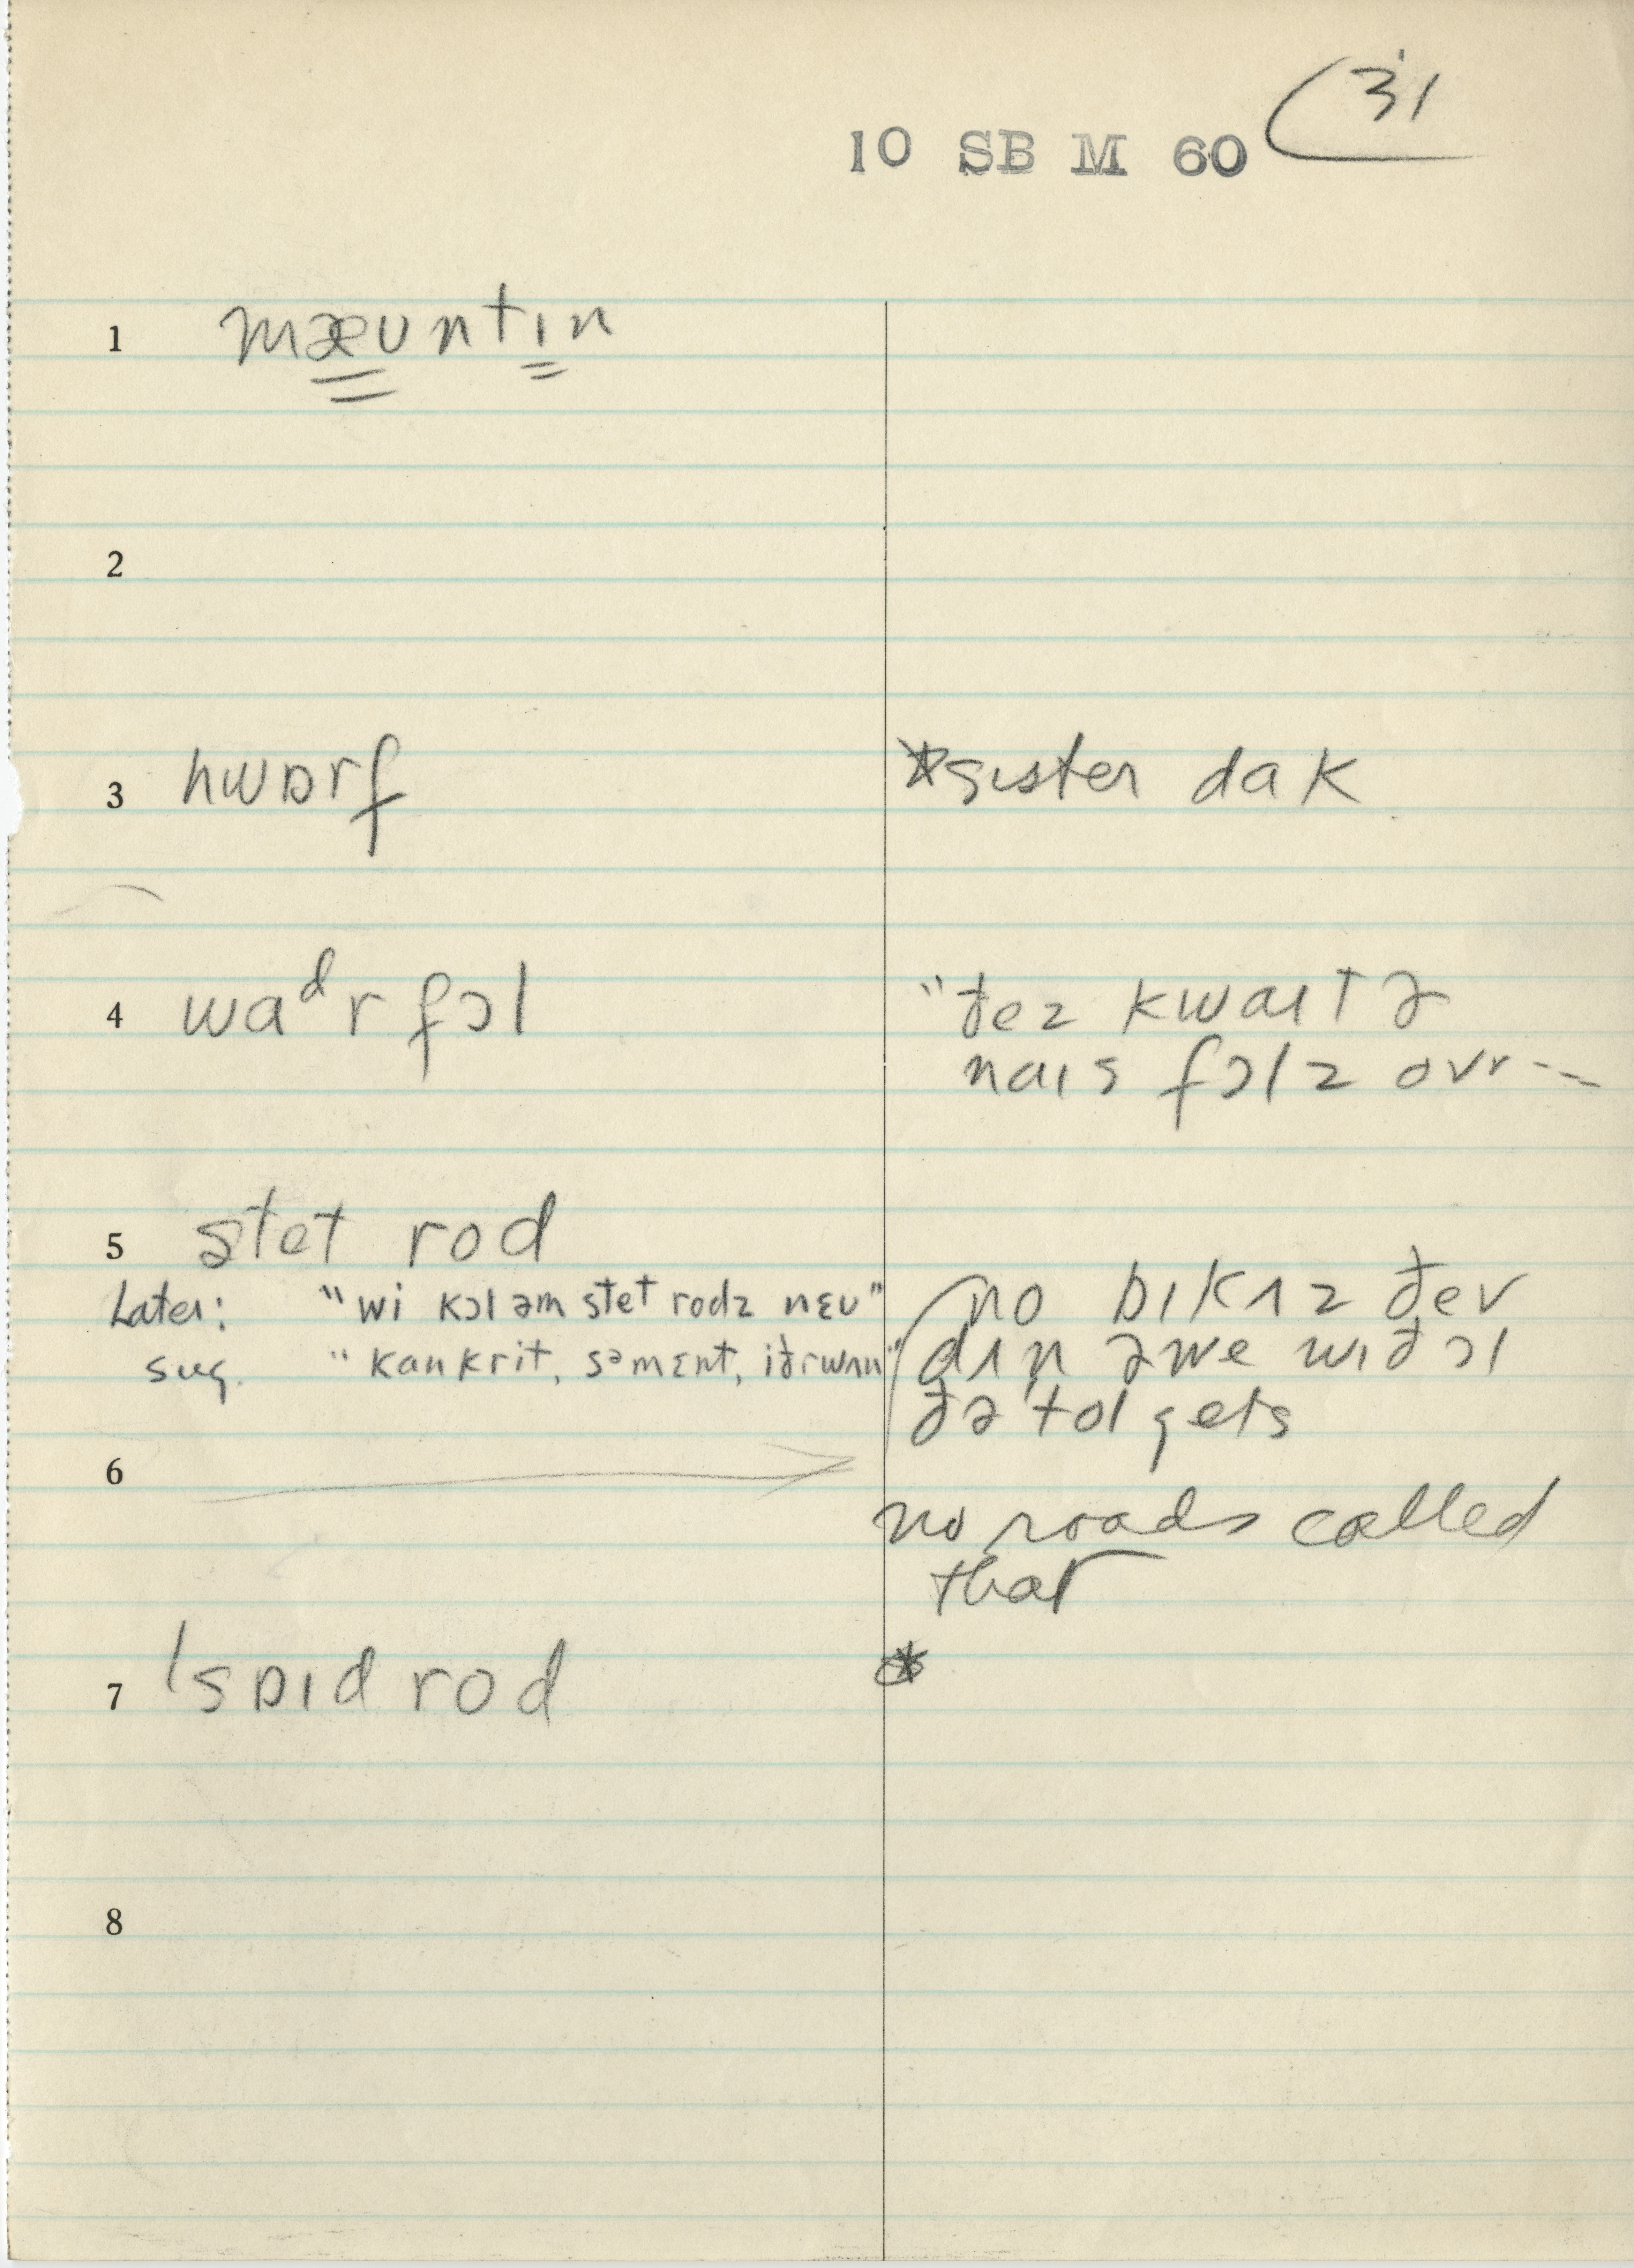 31
10 SB M 60
1 mæʊntɪn
2
3 hwɒrf
*sɪster dak
4 waᵈr fɔl
"ðez kwaɪt ə
naɪs fɔlz ovr --
5 stet rod
Later: "wi kɔl əm stet rodz nɛʊ"
sug. "kankrit, səmɛnt, iðrwʌn"
no bɪkʌz ðev
dʌn əwe wɪð ɔl
ðə tol gets
6
no roads called
that
7 ˈspɪd rod
*
8